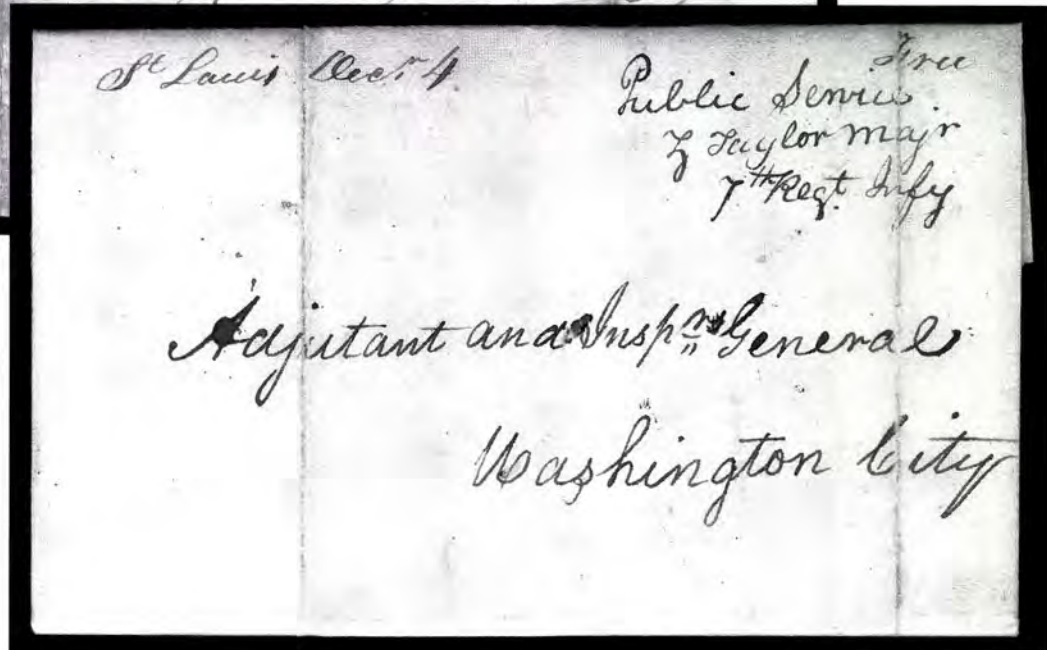 St Louis Decr 4.
Free
Public Service.
Z Taylor Majr
7th Regt. Infy
Adjutant and Inspr General
Washington City